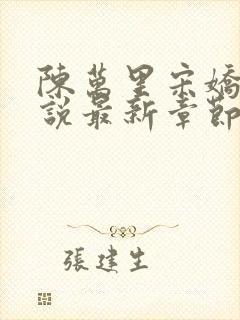 陳萬里宋嬌
說最新章節
張建生